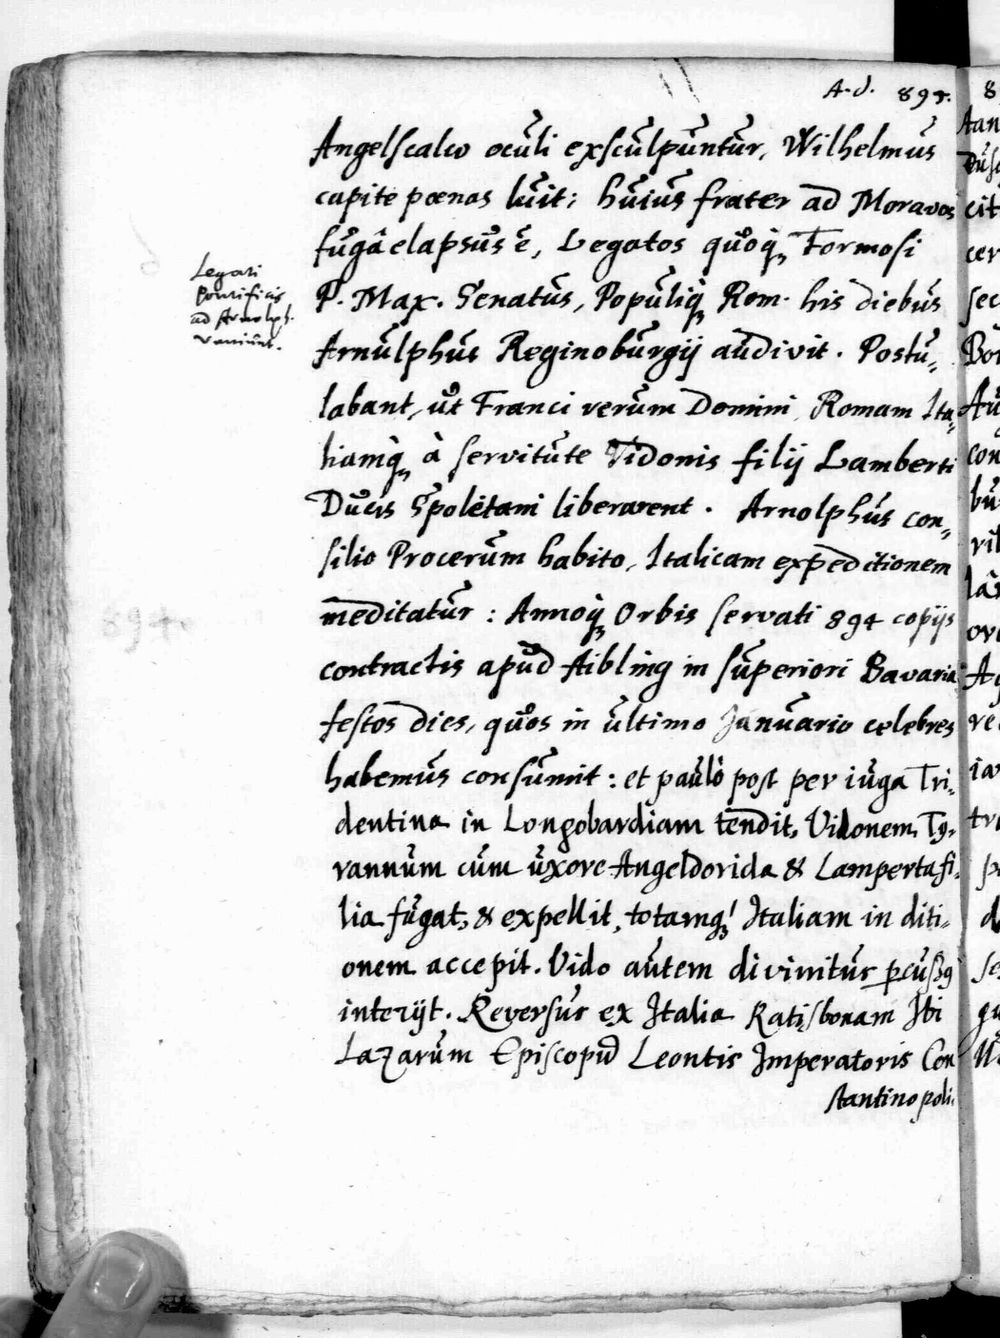 A.d. 895.
Angelscalco oculi exsculpuntur, Wilhelmus
capite poenas luit; huius frater ad Moravos
fugâ elapsus ē, Legatos quoq̀ₛ Formosi
P. Max. Senatus, Populiq̀ₛ Rom. his diebus
Arnulphus Reginoburgij audivit. Postu-
labant, ut Franci verum Domini, Romam Ita-
liamq̀ₛ à servitute Vidonis filij Lamberti
Ducis Spoletani liberarent. Arnolphus con-
silio Procerum habito, Italicam expeditionem
meditatur: Annoq̀ₛ Orbis servati 894 copijs
contractis apud Aibling in superiori Bavaria
festos dies, quos in ultimo Januario celebres
habemus consumit: et paulò post per iuga Tri-
dentina in Longobardiam tendit, Vidonem, Ty-
rannum cum uxore Angeldorida & Lamperta fi-
lia fugat, & expellit, totamq́ₛ Italiam in diti-
onem accepit. Vido autem divinitus ꝑcussꝰ
interijt. Reversus ex Italia Ratisbonam Ibi
Lazarum Episcopū Leontis Imperatoris Con
stantinopoli-
Legati
Pontificis
ad Arnolph.
veniunt.
894